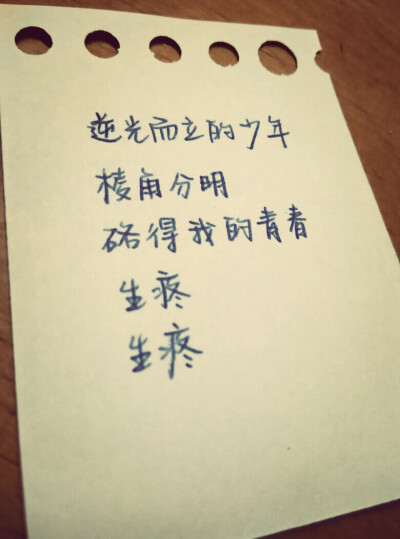 逆光而立的少年
棱角分明
硌得我的青春
生疼
生疼